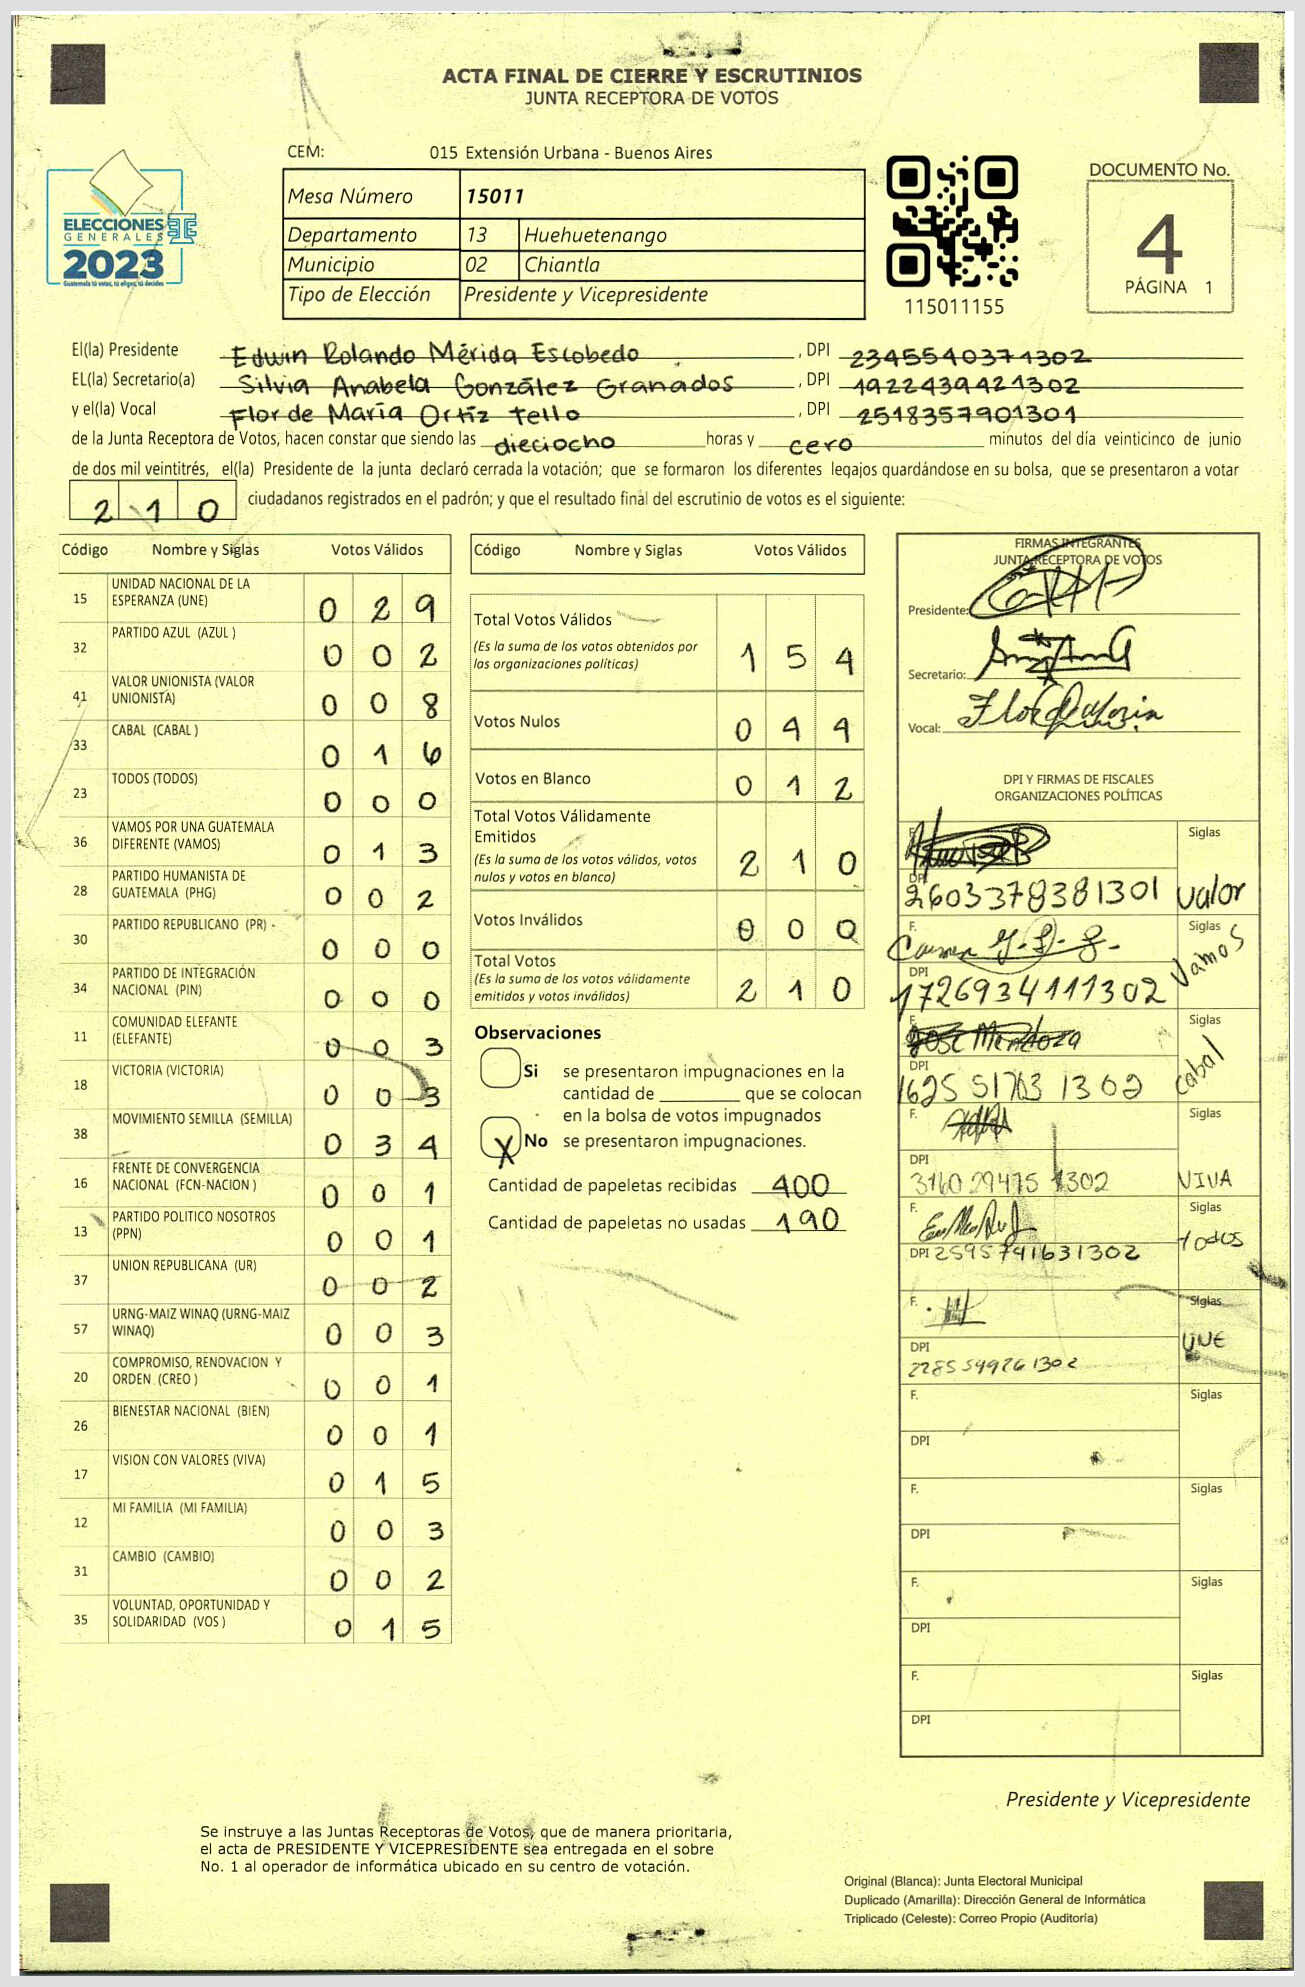 ACTA FINAL DE CIERRE Y ESCRUTINIOS
JUNTA RECEPTORA DE VOTOS
CEM: 015 Extensión Urbana - Buenos Aires
Mesa Número 15011
Departamento 13 Huehuetenango
Municipio 02 Chiantla
Tipo de Elección Presidente y Vicepresidente
ELECCIONES
GENERALES
2023
Guatemala tú votas, tú eliges, tú decides
115011155
DOCUMENTO No.
4
PÁGINA 1
El(la) Presidente Edwin Rolando Mérida Escobedo , DPI 2345540371302
EL(la) Secretario(a) Silvia Anabela González Granados , DPI 1922439421302
y el(la) Vocal Flor de María Ortíz Tello , DPI 2518357901301
de la Junta Receptora de Votos, hacen constar que siendo las dieciocho horas y cero minutos del día veinticinco de junio
de dos mil veintitrés, el(la) Presidente de la junta declaró cerrada la votación; que se formaron los diferentes legajos guardándose en su bolsa, que se presentaron a votar
210 ciudadanos registrados en el padrón; y que el resultado final del escrutinio de votos es el siguiente:
Código Nombre y Siglas Votos Válidos
15 UNIDAD NACIONAL DE LA ESPERANZA (UNE) 0 2 9
32 PARTIDO AZUL (AZUL ) 0 0 2
41 VALOR UNIONISTA (VALOR UNIONISTA) 0 0 8
33 CABAL (CABAL ) 0 1 6
23 TODOS (TODOS) 0 0 0
36 VAMOS POR UNA GUATEMALA DIFERENTE (VAMOS) 0 1 3
28 PARTIDO HUMANISTA DE GUATEMALA (PHG) 0 0 2
30 PARTIDO REPUBLICANO (PR) - 0 0 0
34 PARTIDO DE INTEGRACIÓN NACIONAL (PIN) 0 0 0
11 COMUNIDAD ELEFANTE (ELEFANTE) 0 0 3
18 VICTORIA (VICTORIA) 0 0 3
38 MOVIMIENTO SEMILLA (SEMILLA) 0 3 4
16 FRENTE DE CONVERGENCIA NACIONAL (FCN-NACION ) 0 0 1
13 PARTIDO POLITICO NOSOTROS (PPN) 0 0 1
37 UNION REPUBLICANA (UR) 0 0 2
57 URNG-MAIZ WINAQ (URNG-MAIZ WINAQ) 0 0 3
20 COMPROMISO, RENOVACION Y ORDEN (CREO ) 0 0 1
26 BIENESTAR NACIONAL (BIEN) 0 0 1
17 VISION CON VALORES (VIVA) 0 1 5
12 MI FAMILIA (MI FAMILIA) 0 0 3
31 CAMBIO (CAMBIO) 0 0 2
35 VOLUNTAD, OPORTUNIDAD Y SOLIDARIDAD (VOS ) 0 1 5
Código Nombre y Siglas Votos Válidos
Total Votos Válidos 1 5 4
(Es la suma de los votos obtenidos por
las organizaciones políticas)
Votos Nulos 0 4 4
Votos en Blanco 0 1 2
Total Votos Válidamente
Emitidos 2 1 0
(Es la suma de los votos válidos, votos
nulos y votos en blanco)
Votos Inválidos 0 0 0
Total Votos 2 1 0
(Es la suma de los votos válidamente
emitidos y votos inválidos)
Observaciones
Si se presentaron impugnaciones en la
cantidad de ________ que se colocan
en la bolsa de votos impugnados
X No se presentaron impugnaciones.
Cantidad de papeletas recibidas 400
Cantidad de papeletas no usadas 190
FIRMAS INTEGRANTES
JUNTA RECEPTORA DE VOTOS
Presidente:
Secretario:
Vocal:
DPI Y FIRMAS DE FISCALES
ORGANIZACIONES POLÍTICAS
F. Siglas
DPI 2603378381301 Valor
F. Siglas
DPI 1726934111302 Vamos
F. José Mendoza Siglas
DPI Cabal
F. Siglas
DPI 3160 29475 1302 VIVA
F. Siglas
DPI 2595741631302 todos
F. Siglas
DPI 2285549261302 UNE
F. Siglas
DPI
F. Siglas
DPI
F. Siglas
DPI
F. Siglas
DPI
Presidente y Vicepresidente
Se instruye a las Juntas Receptoras de Votos, que de manera prioritaria,
el acta de PRESIDENTE Y VICEPRESIDENTE sea entregada en el sobre
No. 1 al operador de informática ubicado en su centro de votación.
Original (Blanca): Junta Electoral Municipal
Duplicado (Amarilla): Dirección General de Informática
Triplicado (Celeste): Correo Propio (Auditoría)